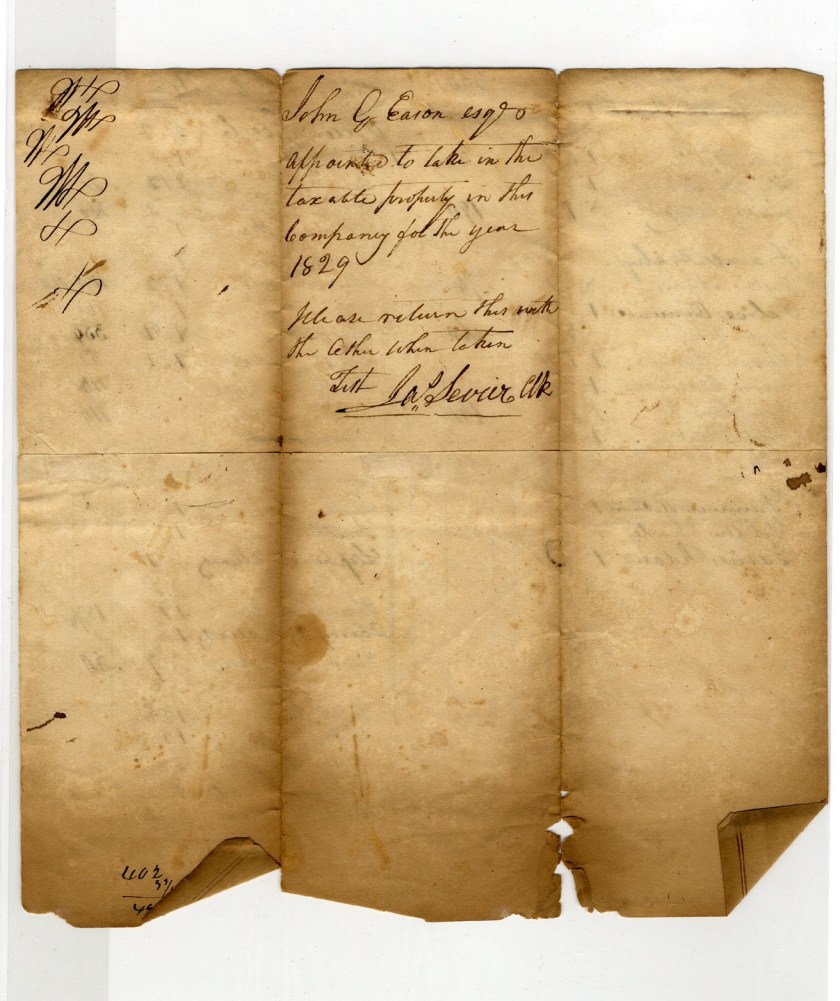 John G Eason esqr
appointed to take in the
taxable property in this
Company for the year
1829
please return this with
the other when taken
Test Jas Sevier Clk
402